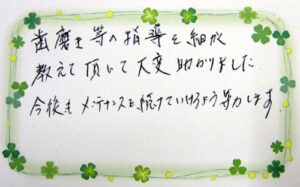 歯磨き等の指導を細かく
教えて頂いて大変助かりました
今後もメンテナンスを続けていけるよう努力します。